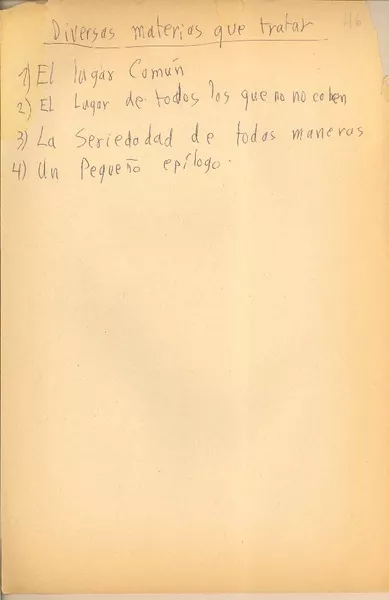 46
Diversas materias que tratar
1) El lugar Común
2) El Lugar de todos los que no no caben
3) La Seriedodad de todas maneras
4) Un Pequeño epílogo.